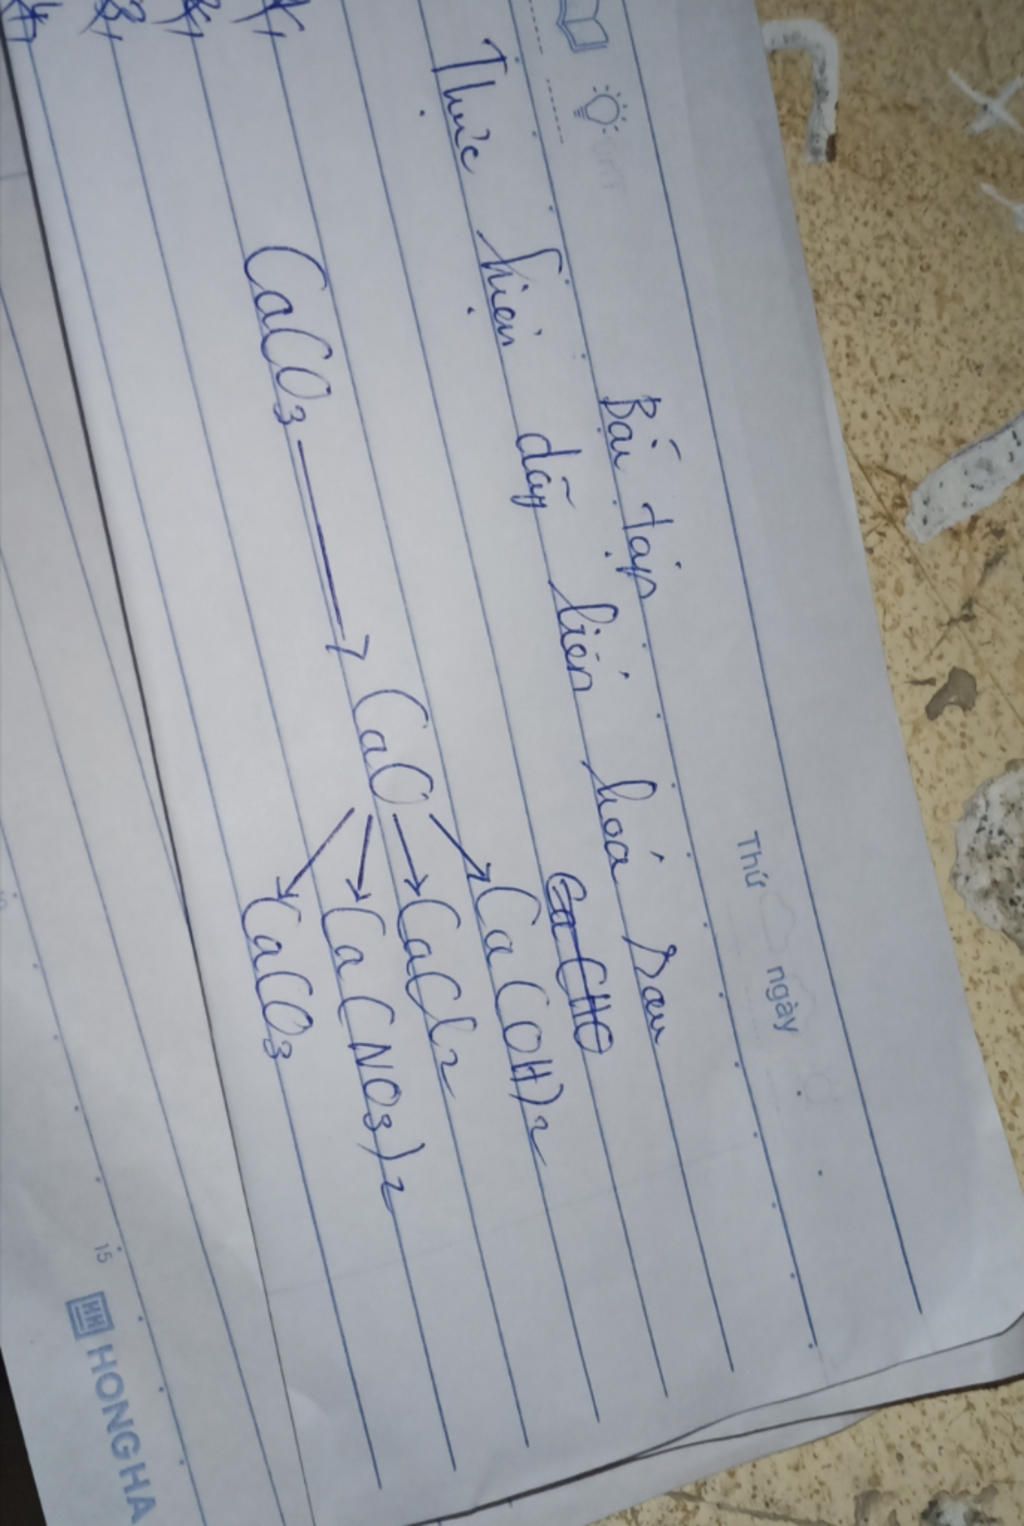 Thứ ngày
Bài tập
Thực hiện dãy biến hoá sau
CaCHO
CaCO3 → CaO → Ca(OH)2
→ CaCl2
→ Ca(NO3)2
→ CaCO3
15
HONGHA